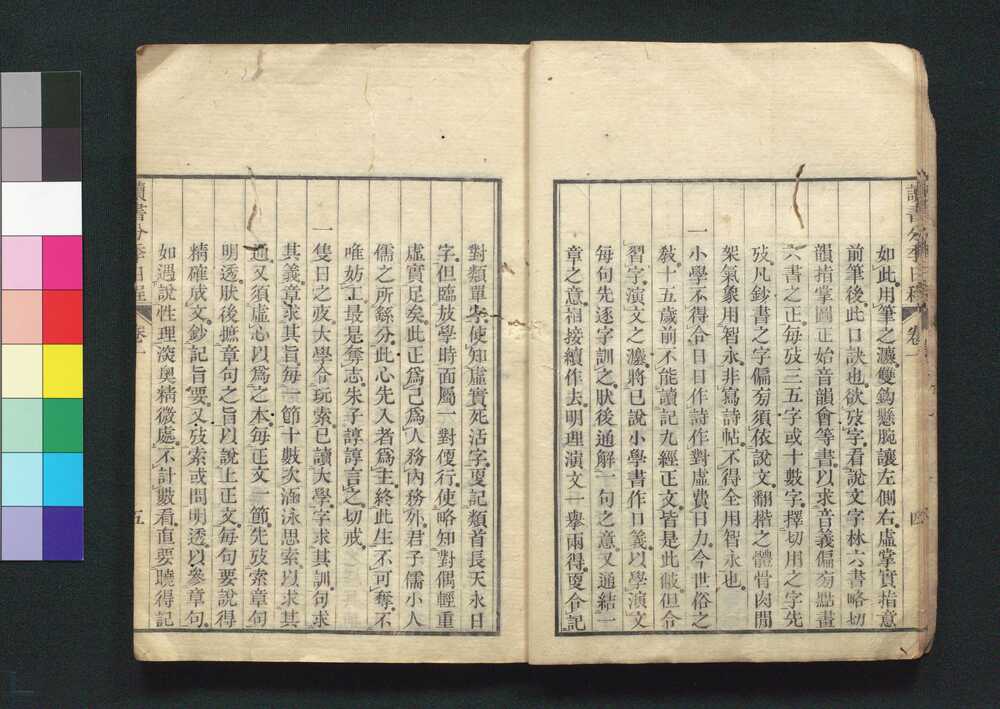 讀書分年日程 卷一 四
如此用筆之灋雙鈎懸腕讓左側右虛掌實指意
前筆後此口訣也欲攷字看說文字林六書略切
韻指掌圖正始音韻會等書以求音義偏㫄點畫
六書之正每攷三五字或十數字擇切用之字先
攷凡鈔書之字偏㫄須依說文翻楷之體骨肉閒
架氣象用智永非寫詩帖不得全用智永也
一小學不得令日日作詩作對虛費日力今世俗之
敎十五歲前不能讀記九經正文皆是此敝但令
習字演文之灋將已說小學書作口義以學演文
每句先逐字訓之肰後通解一句之意又通結一
章之意相接續作去明理演文一舉兩得更令記
對類單字使知虛實死活字更記類首長天永日
字但臨放學時面屬一對便行使略知對偶輕重
虛實足矣此正爲己爲人務內務外君子儒小人
儒之所繇分此心先入者爲主終此生不可奪不
唯妨工最是奪志朱子諄諄言之切戒
一隻日之夜大學令玩索已讀大學字求其訓句求
其義章求其旨每一節十數次涵泳思索以求其
通又須虛心以爲之本每正文一節先攷索章句
明透肰後摭章句之旨以說上正文每句要說得
精確成文鈔記旨要又攷索或問明透以參章句
如遇說性理深奧精微處不計數看直要曉得記
讀書分年日程 卷一 五